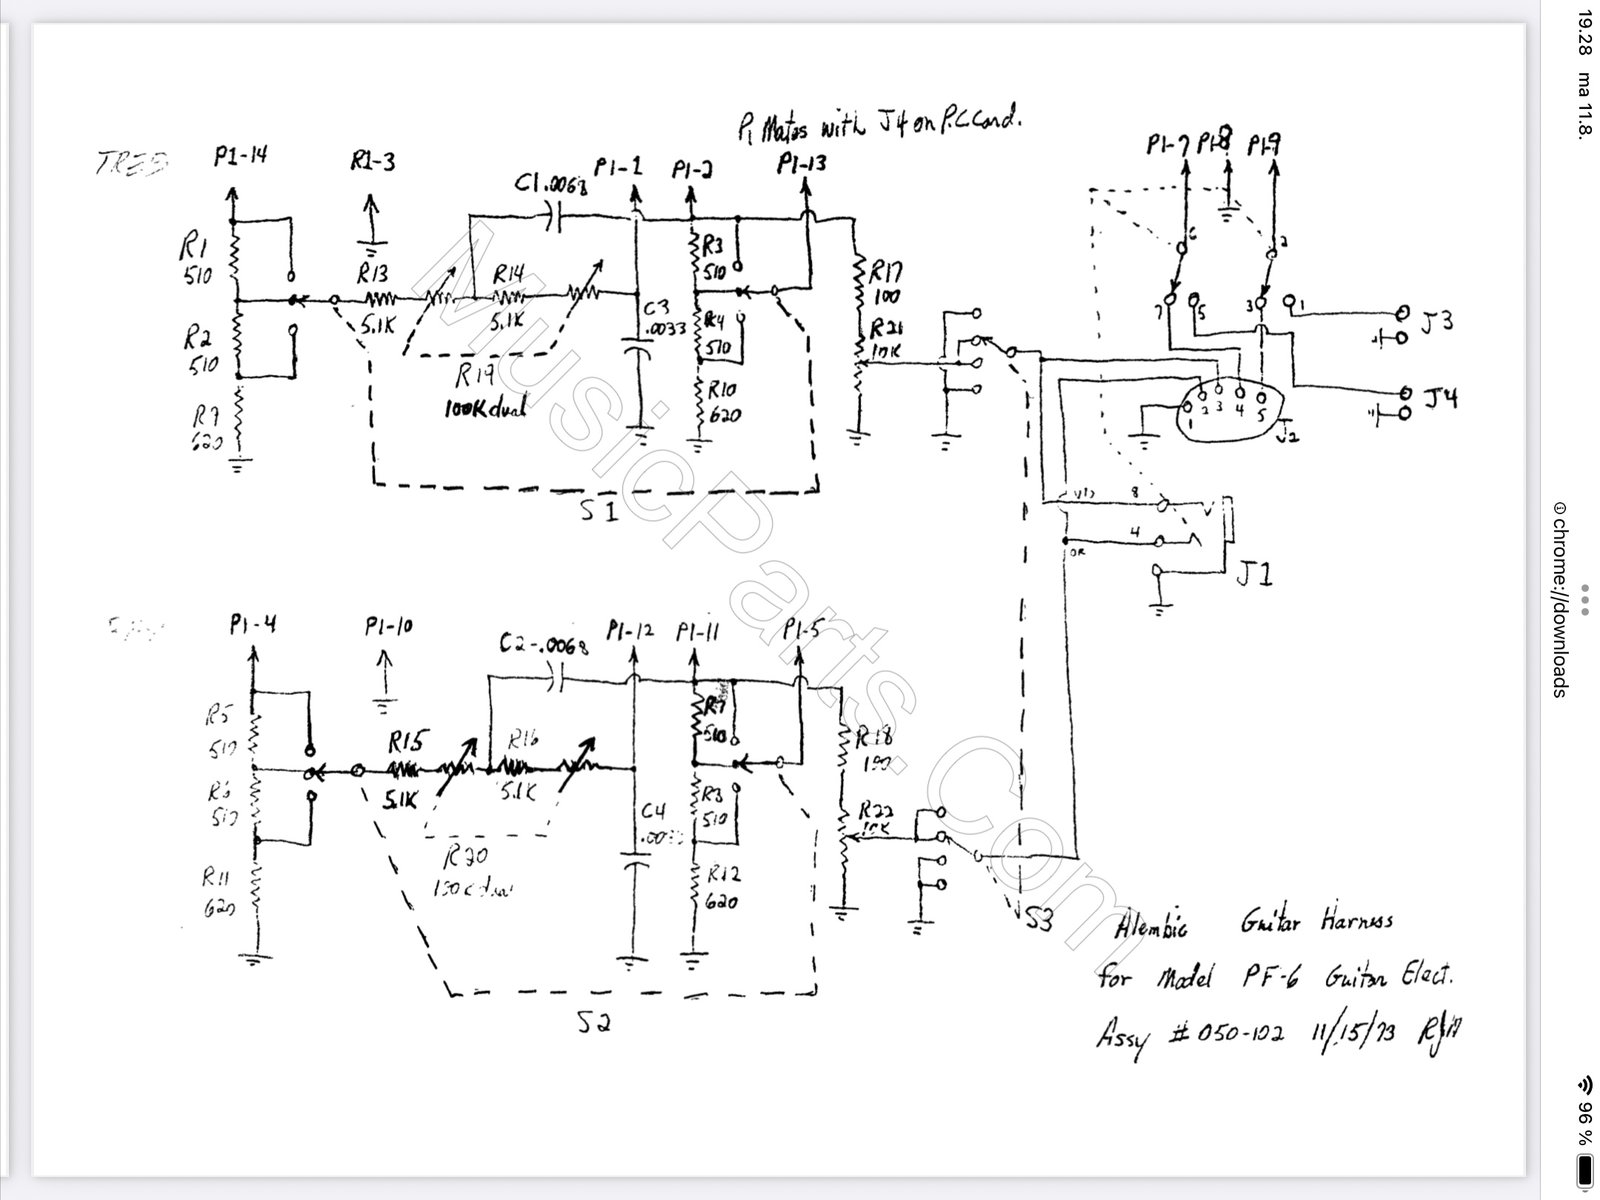 P1 Mates with J4 on P.C Card.
TREB
P1-14
R1-3
P1-1
P1-2
P1-13
P1-7
P1-8
P1-9
C1 .0068
R1
510
R13
5.1K
R14
5.1K
R3
510
R17
100
6
2
7
5
3
1
J3
R2
510
C3
.0033
R4
510
R21
10K
R19
100K dual
R10
620
R9
620
1
2
3
4
5
J2
J4
S1
VIO
8
4
OR
J1
P1-4
P1-10
C2-.0068
P1-12
P1-11
P1-5
R5
510
R15
5.1K
R16
5.1K
R7
510
R18
100
R6
510
C4
R22
10K
510
R20
R11
620
R12
620
S3
S2
MusicParts.Com
Alembic Guitar Harness
for Model PF-6 Guitar Elect.
Assy # 050-102 11/15/73
19.28 ma 11.8.
chrome://downloads
96 %